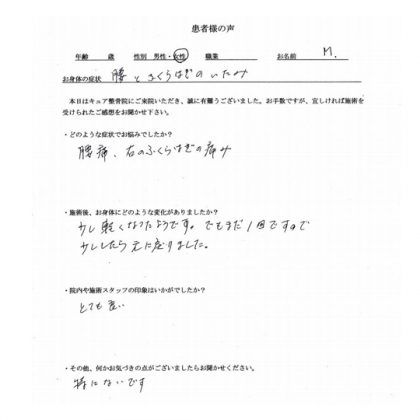 患者様の声
年齢 歳 性別 男性・女性 職業 お名前 M.
お身体の症状 腰とふくらはぎのいたみ
本日はキュア整骨院にご来院いただき、誠に有難うございました。お手数ですが、宜しければ施術を
受けられたご感想をお聞かせ下さい。
・どのような症状でお悩みでしたか？
腰痛、右のふくらはぎの痛み
・施術後、お身体にどのような変化がありましたか？
少し軽くなったようです。でもまだ1回ですので
少ししたら元に戻りました。
・院内や施術スタッフの印象はいかがでしたか？
とても良い
・その他、何かお気づきの点がございましたらお聞かせください。
特にないです